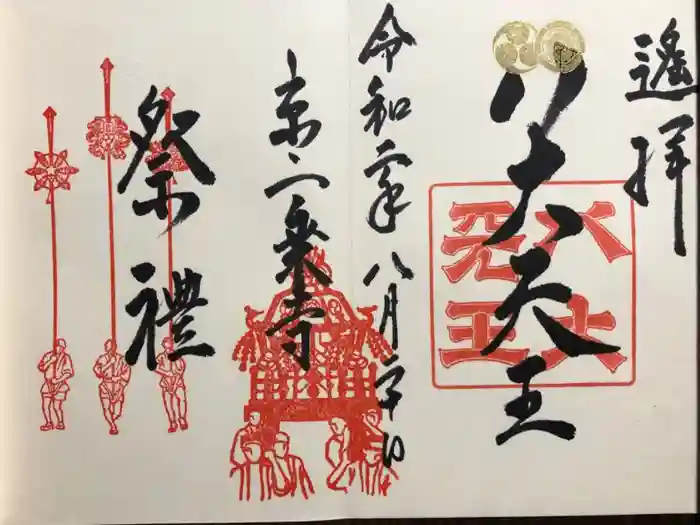 遙拝
八大天王
八大
天王
令和二年八月二十日
京一乗寺
祭禮